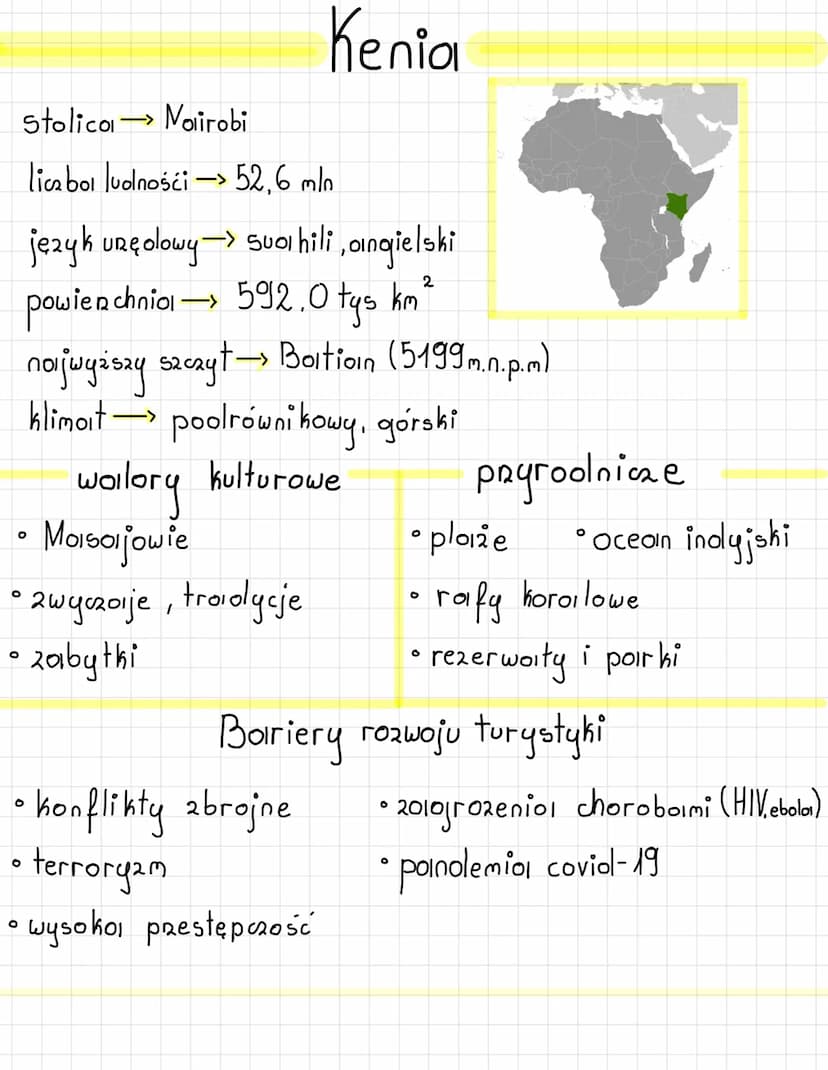 Kenia
stolica → Nairobi
liczba ludnośći → 52,6 mln
język urzędowy → suahili, angielski
powierzchnia → 592,0 tys km²
najwyższy szczyt → Batian (5199 m.n.p.m)
klimat → podrównikowy, górski
walory kulturowe
• Masajowie
• zwyczaje, tradycje
• zabytki
przyrodnicze
• plaże • ocean indyjski
• rafy koralowe
• rezerwaty i parki
Bariery rozwoju turystyki
• konflikty zbrojne
• terroryzm
• wysoka przestępczość
• zagrożenia chorobami (HIV, ebola)
• pandemia covid-19